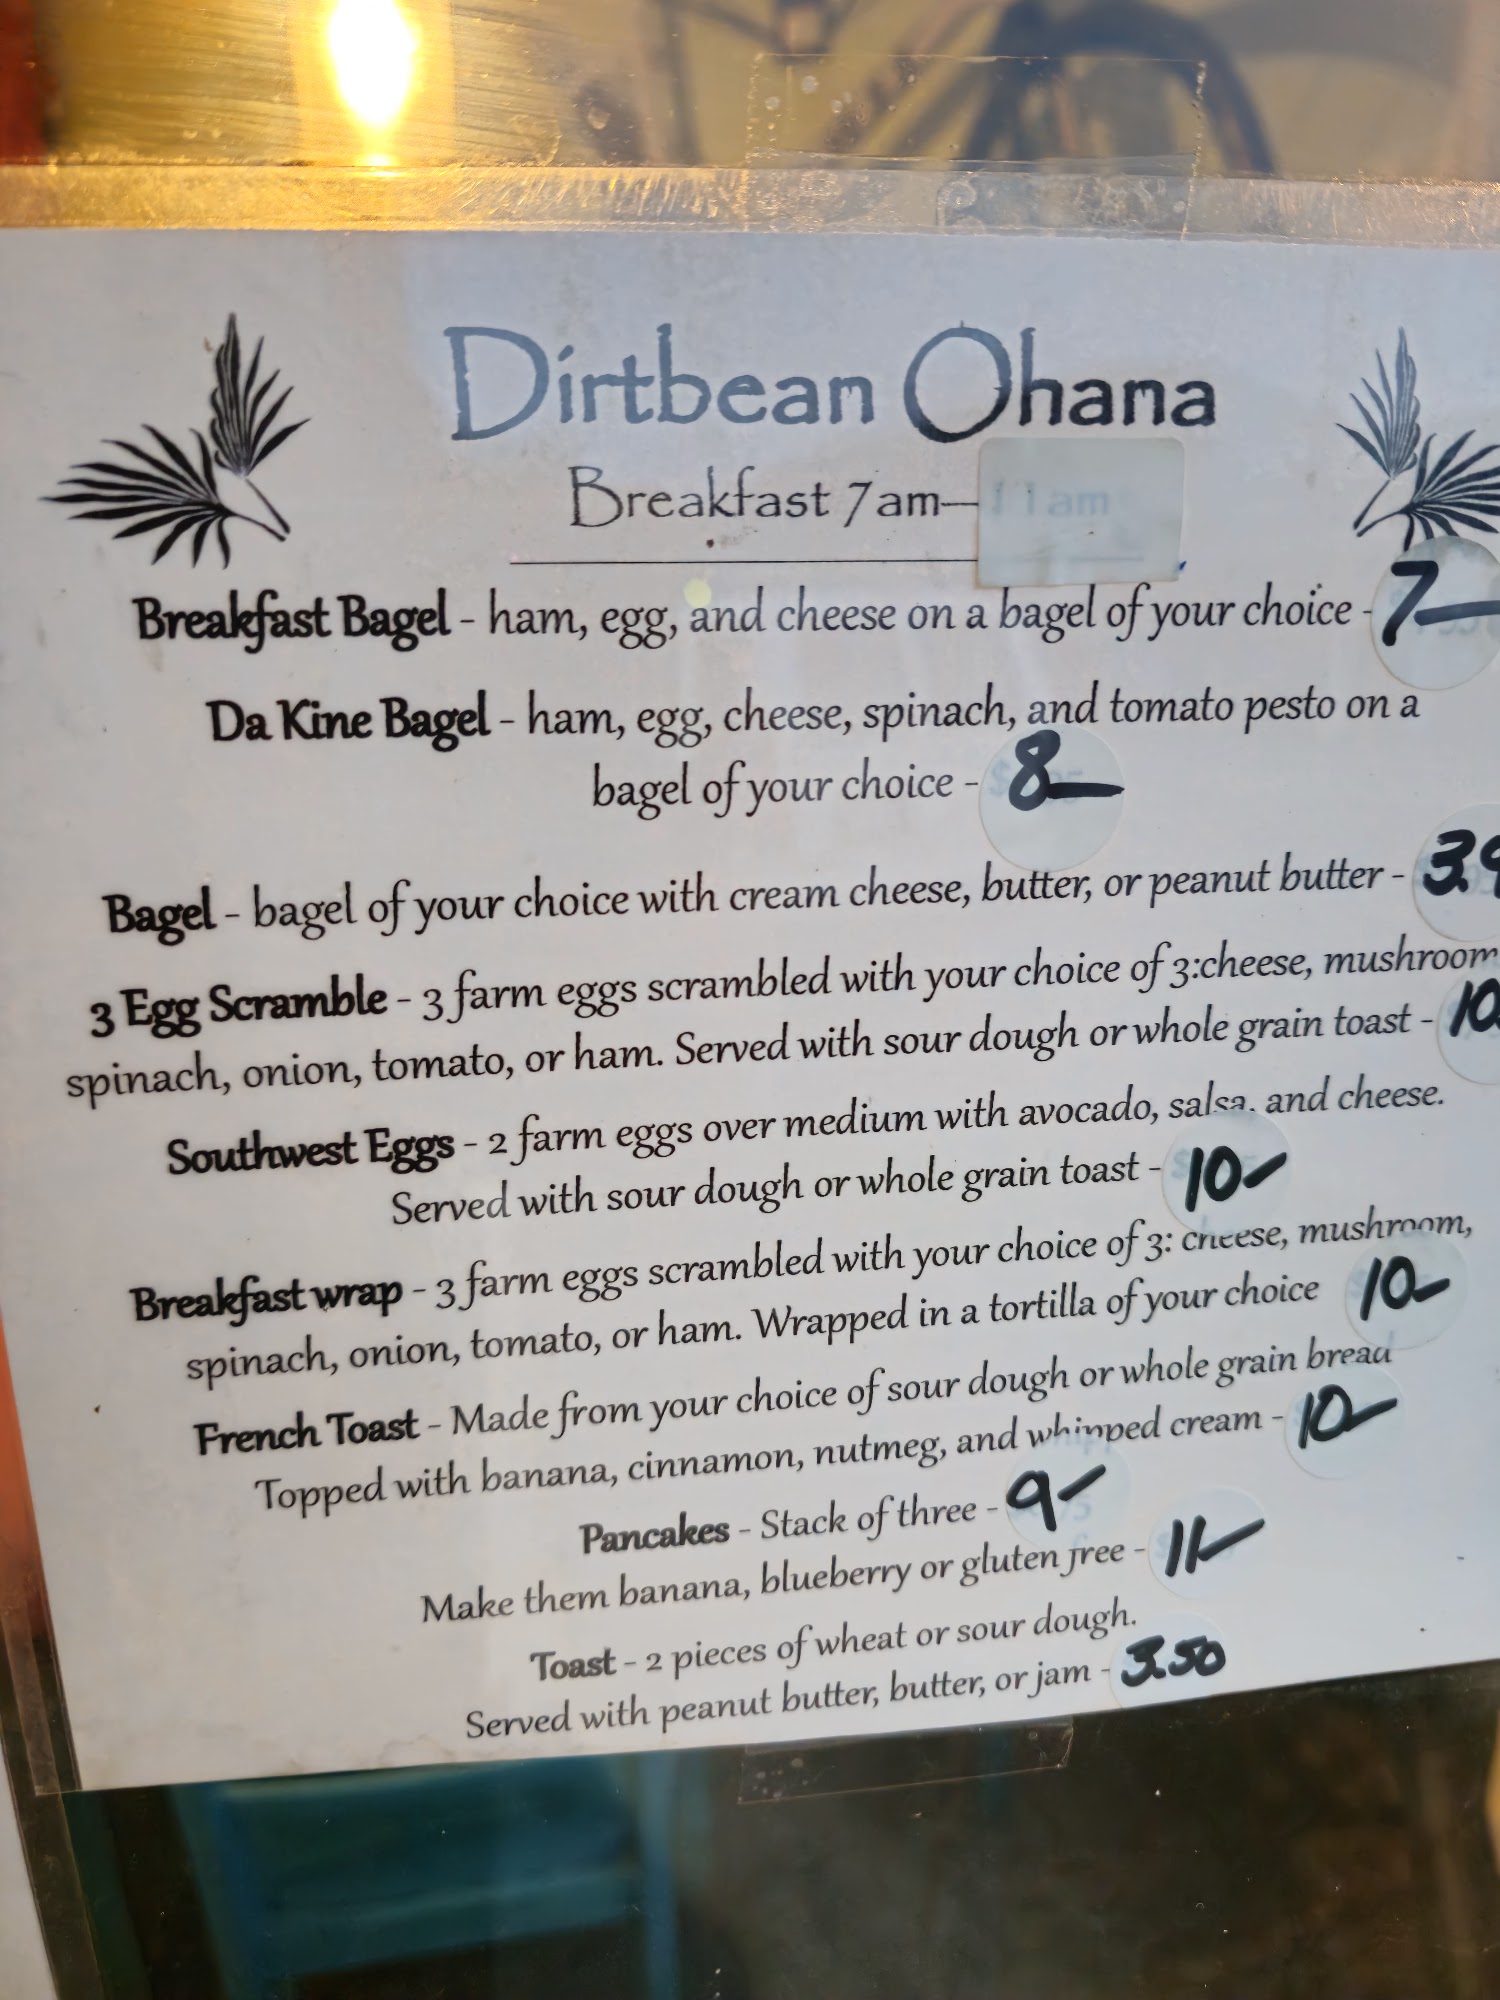 Dirtbean Ohana
Breakfast 7am—11am
Breakfast Bagel - ham, egg, and cheese on a bagel of your choice - 7—
Da Kine Bagel - ham, egg, cheese, spinach, and tomato pesto on a
bagel of your choice - 8—
Bagel - bagel of your choice with cream cheese, butter, or peanut butter - 3.9
3 Egg Scramble - 3 farm eggs scrambled with your choice of 3:cheese, mushroom
spinach, onion, tomato, or ham. Served with sour dough or whole grain toast - 10
Southwest Eggs - 2 farm eggs over medium with avocado, salsa, and cheese.
Served with sour dough or whole grain toast - 10—
Breakfast wrap - 3 farm eggs scrambled with your choice of 3: cheese, mushroom,
spinach, onion, tomato, or ham. Wrapped in a tortilla of your choice 10—
French Toast - Made from your choice of sour dough or whole grain bread
Topped with banana, cinnamon, nutmeg, and whipped cream - 10—
Pancakes - Stack of three - 9—
Make them banana, blueberry or gluten free - 11—
Toast - 2 pieces of wheat or sour dough.
Served with peanut butter, butter, or jam - 3.50